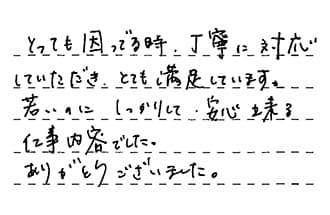 とっても困ってる時、丁寧に対応
していただき、とても満足しています。
若いのに しっかりして、安心出来る
仕事内容でした。
ありがとうございました。